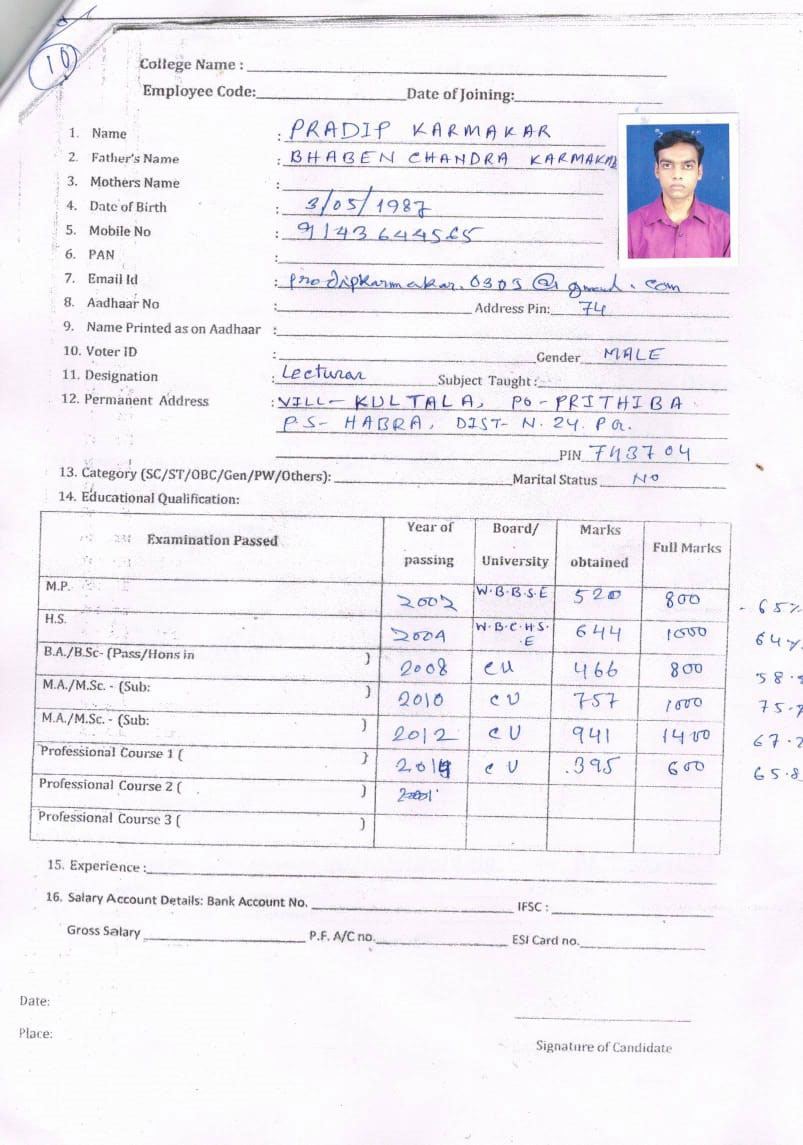 10
College Name :
Employee Code: Date of Joining:
1. Name : PRADIP KARMAKAR
2. Father's Name : BHABEN CHANDRA KARMAKAR
3. Mothers Name :
4. Date of Birth : 3/05/1987
5. Mobile No : 9143644565
6. PAN :
7. Email Id : prodipkarmakar.0303@gmail.com
8. Aadhaar No : Address Pin: 74
9. Name Printed as on Aadhaar :
10. Voter ID : Gender MALE
11. Designation : Lecturar Subject Taught :
12. Permanent Address : VILL- KULTALA, PO- PRITHIBA
P.S- HABRA, DIST- N. 24. Pa.
PIN 743704
13. Category (SC/ST/OBC/Gen/PW/Others): Marital Status NO
14. Educational Qualification:
Examination Passed Year of passing Board/ University Marks obtained Full Marks
M.P. 2002 W.B.B.S.E 520 800 - 65%
H.S. 2004 W.B.C.H.S.E 644 1000 64%
B.A./B.Sc- (Pass/Hons in ) 2008 CU 466 800 58.
M.A./M.Sc. - (Sub: ) 2010 CU 757 1000 75.7
M.A./M.Sc. - (Sub: ) 2012 CU 941 1400 67.2
Professional Course 1 ( ) 2014 CU .395 600 65.8
Professional Course 2 ( )
Professional Course 3 ( )
15. Experience :
16. Salary Account Details: Bank Account No. IFSC :
Gross Salary P.F. A/C no. ESI Card no.
Date:
Place:
Signature of Candidate